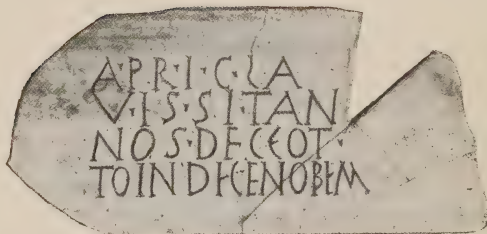 A·P·R·I·C·LA
V·I·S·SITAN
NOS·DECEOT·
TOINDECENOBEM